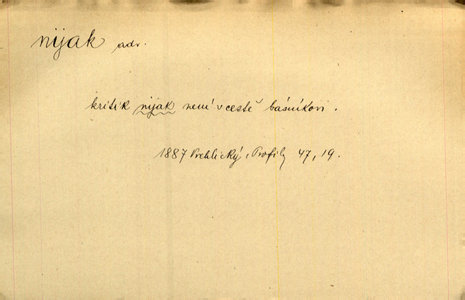 nijak adv.
kritik nijak není v cestě básníkovi.
1887 Vrchlický, Profily 47, 19.